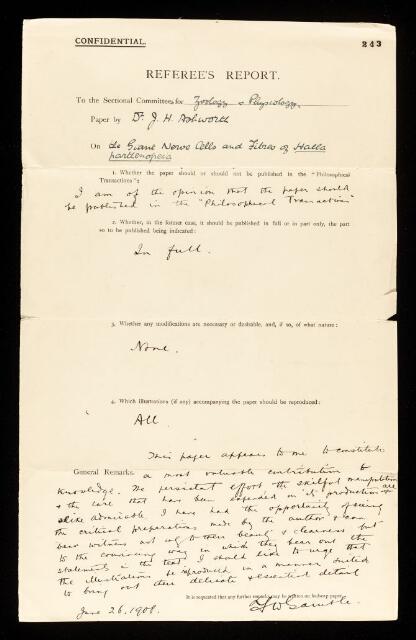 CONFIDENTIAL.
243
REFEREE'S REPORT.
To the Sectional Committees for Zoology & Physiology
Paper by Dr. J. H. Ashworth
On the Giant Nerve Cells and Fibres of Halla
parthenopeia
1. Whether the paper should or should not be published in the "Philosophical
Transactions":
I am of the opinion that the paper should
be published in the "Philosophical Transactions"
2. Whether, in the former case, it should be published in full or in part only, the part
so to be published being indicated:
In full.
3. Whether any modifications are necessary or desirable, and, if so, of what nature:
None.
4. Which illustrations (if any) accompanying the paper should be reproduced:
All
This paper appears to me to constitute
General Remarks. a most valuable contribution to
knowledge. The persistent effort the skilful manipulation
& the care that has been expended on its production are
alike admirable. I have had the opportunity of seeing
the critical preparations made by the author & can
bear witness not only to their beauty & clearness but
to the convincing way in which they bear out the
statements in the text. I should like to urge that
the illustrations be reproduced in a manner suited
to bring out their delicate & essential detail
It is requested that any further remarks may be written on foolscap paper.
June 26. 1908.
F W Gamble.